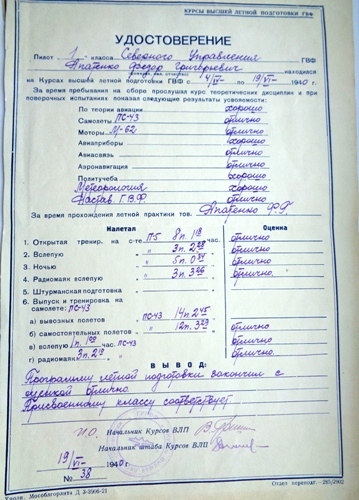 КУРСЫ ВЫСШЕЙ ЛЕТНОЙ ПОДГОТОВКИ ГВФ
УДОСТОВЕРЕНИЕ
Пилот 1 класса Северного Управления ГВФ
Апатенко Федор Григорьевич находился
на Курсах высшей летной подготовки ГВФ с 4/IV по 19/VI 1940 г.
За время пребывания на сборе прослушал курс теоретических дисциплин и при
поверочных испытаниях показал следующие результаты успеваемости:
По теории авиации хорошо
Самолеты ПС-43 отлично
Моторы М-62 отлично
Авиаприборы хорошо
Авиасвязь отлично
Аэронавигация отлично
Политучеба хорошо
Метеорология хорошо
Настав. Г.В.Ф. отлично
За время прохождения летной практики тов. Апатенко Ф.Г.
Налетал Оценка
1. Открытая тренир. на с-те П5 8 п. час. отлично
2. Вслепую " 3 п. отлично
3. Ночью " 5 п. отлично
4. Радиомаяк вслепую " 3 п. отлично
5. Штурманская подготовка
6. Выпуск и тренировка на
самолете:
а) вывозных полетов ПС-43 14 п. отлично
б) самостоятельных полетов " 12 п. отлично
в) вслепую 1 п. час. ПС-43 отлично
г) радиомаяк 3 п. отлично
ВЫВОД:
Программу летной подготовки закончил с
оценкой отлично.
Присвоенному классу соответствует
И.О. Начальник Курсов ВЛП
Начальник штаба Курсов ВЛП
19/VI 1940 г.
№ 38